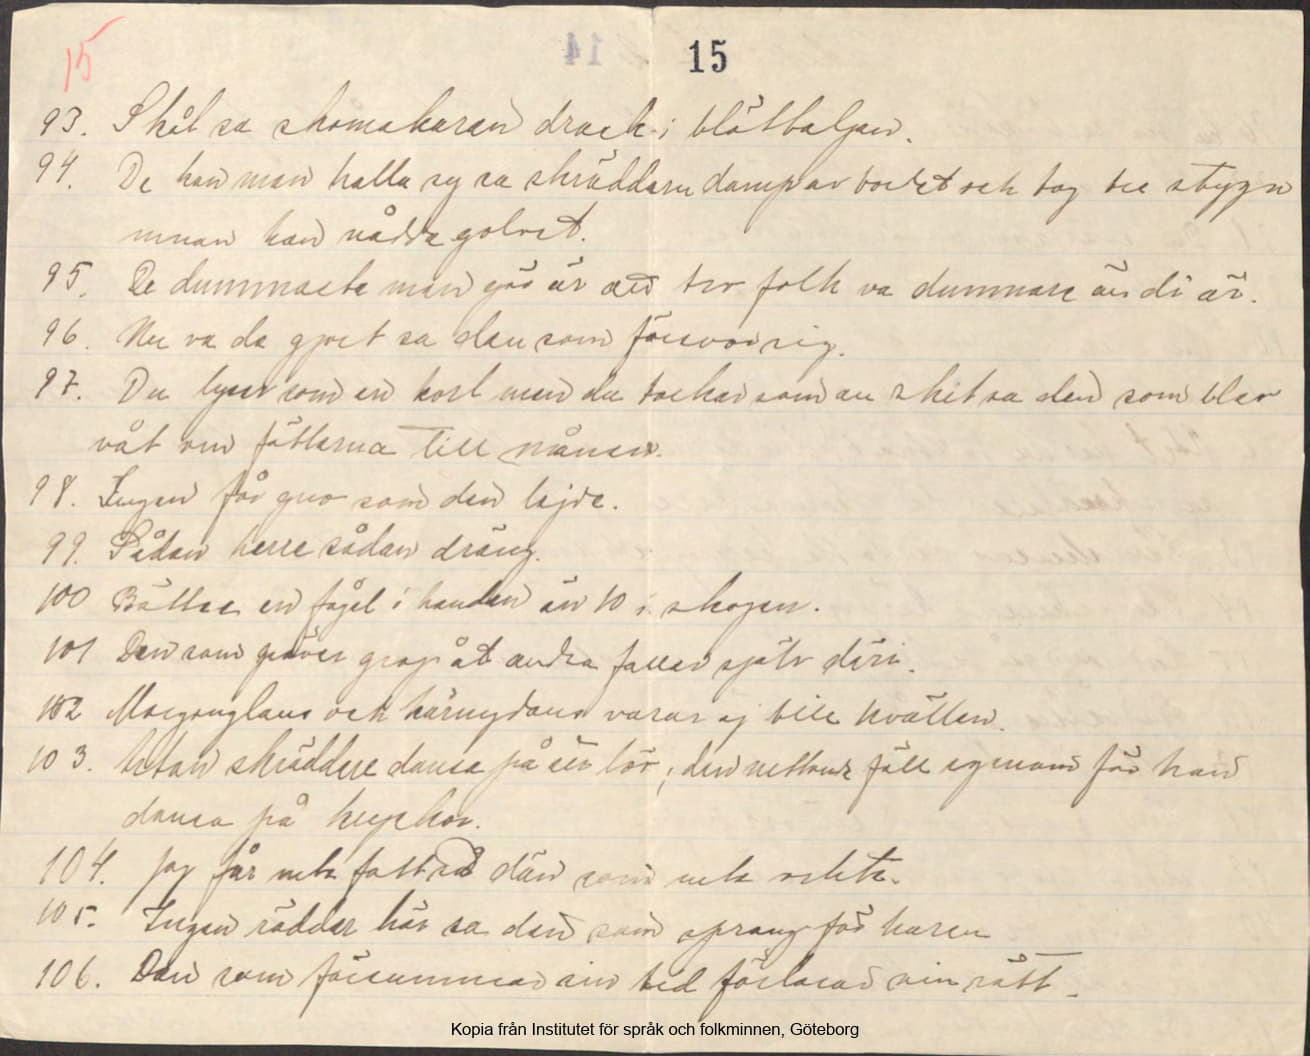 15
15
93. Skål sa skomakaren drack i blötbaljan.
94. De kan man kalla sy sa skräddaren damp av bordet och tog tre stygn
innan han nådde golvet.
95. De dummaste man gör är att tro folk va dummare än di är.
96. Nu va de gjort sa den som försvor sig.
97. Du lyser som en karl men du torkar som en skit sa den som blev
våt om fötterna till månen.
98. Ingen får gno som den lejde.
99. Sådan herre sådan dräng.
100 Bättre en fågel i handen än 10 i skogen.
101 Den som gräver grop åt andra faller själv däri.
102 Morgonglans och käringdans varar ej till kvällen.
103. Utan skräddare dansa på en lår, den nettaste föll igenom för han
dansa på knephor.
104. Jag får nte fatt sa den som nte rökte.
105. Ingen rädder här sa den som sprang för haren
106. Den som försummar sin tid förlorar sin rätt.
Kopia från Institutet för språk och folkminnen, Göteborg